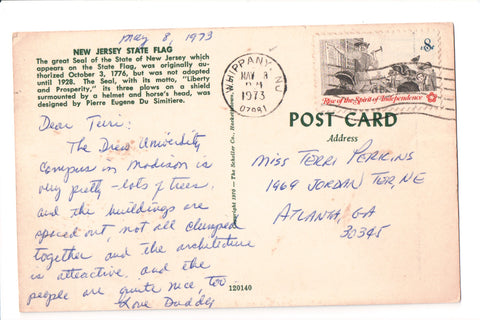 may 8, 1973
NEW JERSEY STATE FLAG
The great Seal of the State of New Jersey which
appears on the State Flag, was originally au-
thorized October 3, 1776, but was not adopted
until 1928. The Seal, with its motto, "Liberty
and Prosperity," its three plows on a shield
surmounted by a helmet and horse's head, was
designed by Pierre Eugene Du Simitiere.
Dear Terri:
The Drew University
Campus in Madison is
very pretty - lots of trees,
and the buildings are
spaced out, not all clumped
together and the architecture
is attractive, and the
people are quite nice, too
Love Daddy
WHIPPANY, NJ
MAY 8
PM
1973
07981
8c
Rise of the Spirit of Independence
POST CARD
Address
Miss Terri Perkins
1969 Jordan Ter NE
Atlanta, GA
30345
Copyright 1970 - The Scheller Co., Hackettstown,
120140